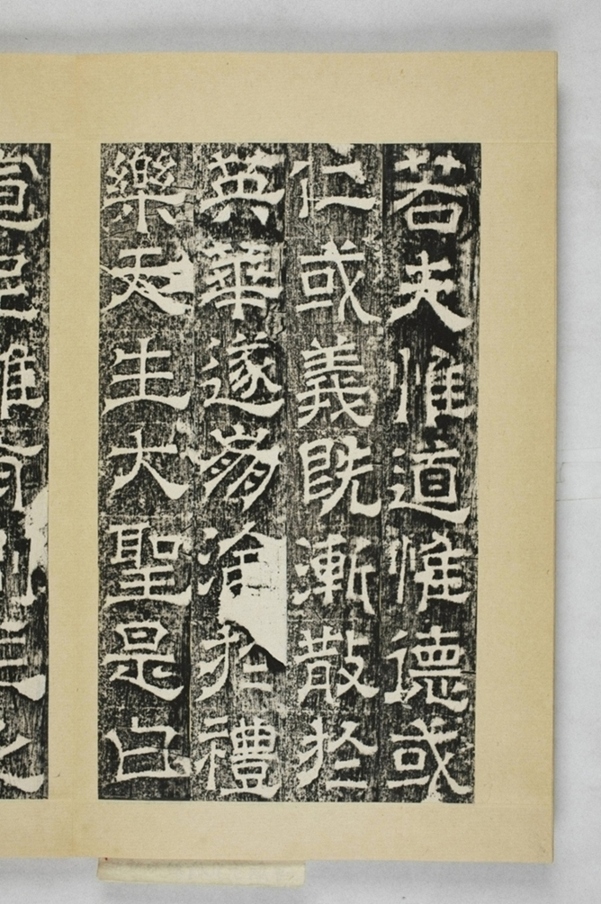 若夫惟道惟德或
仁或義既漸散於
英華遂崩淪於禮
樂天生大聖是曰
宣尼雖有